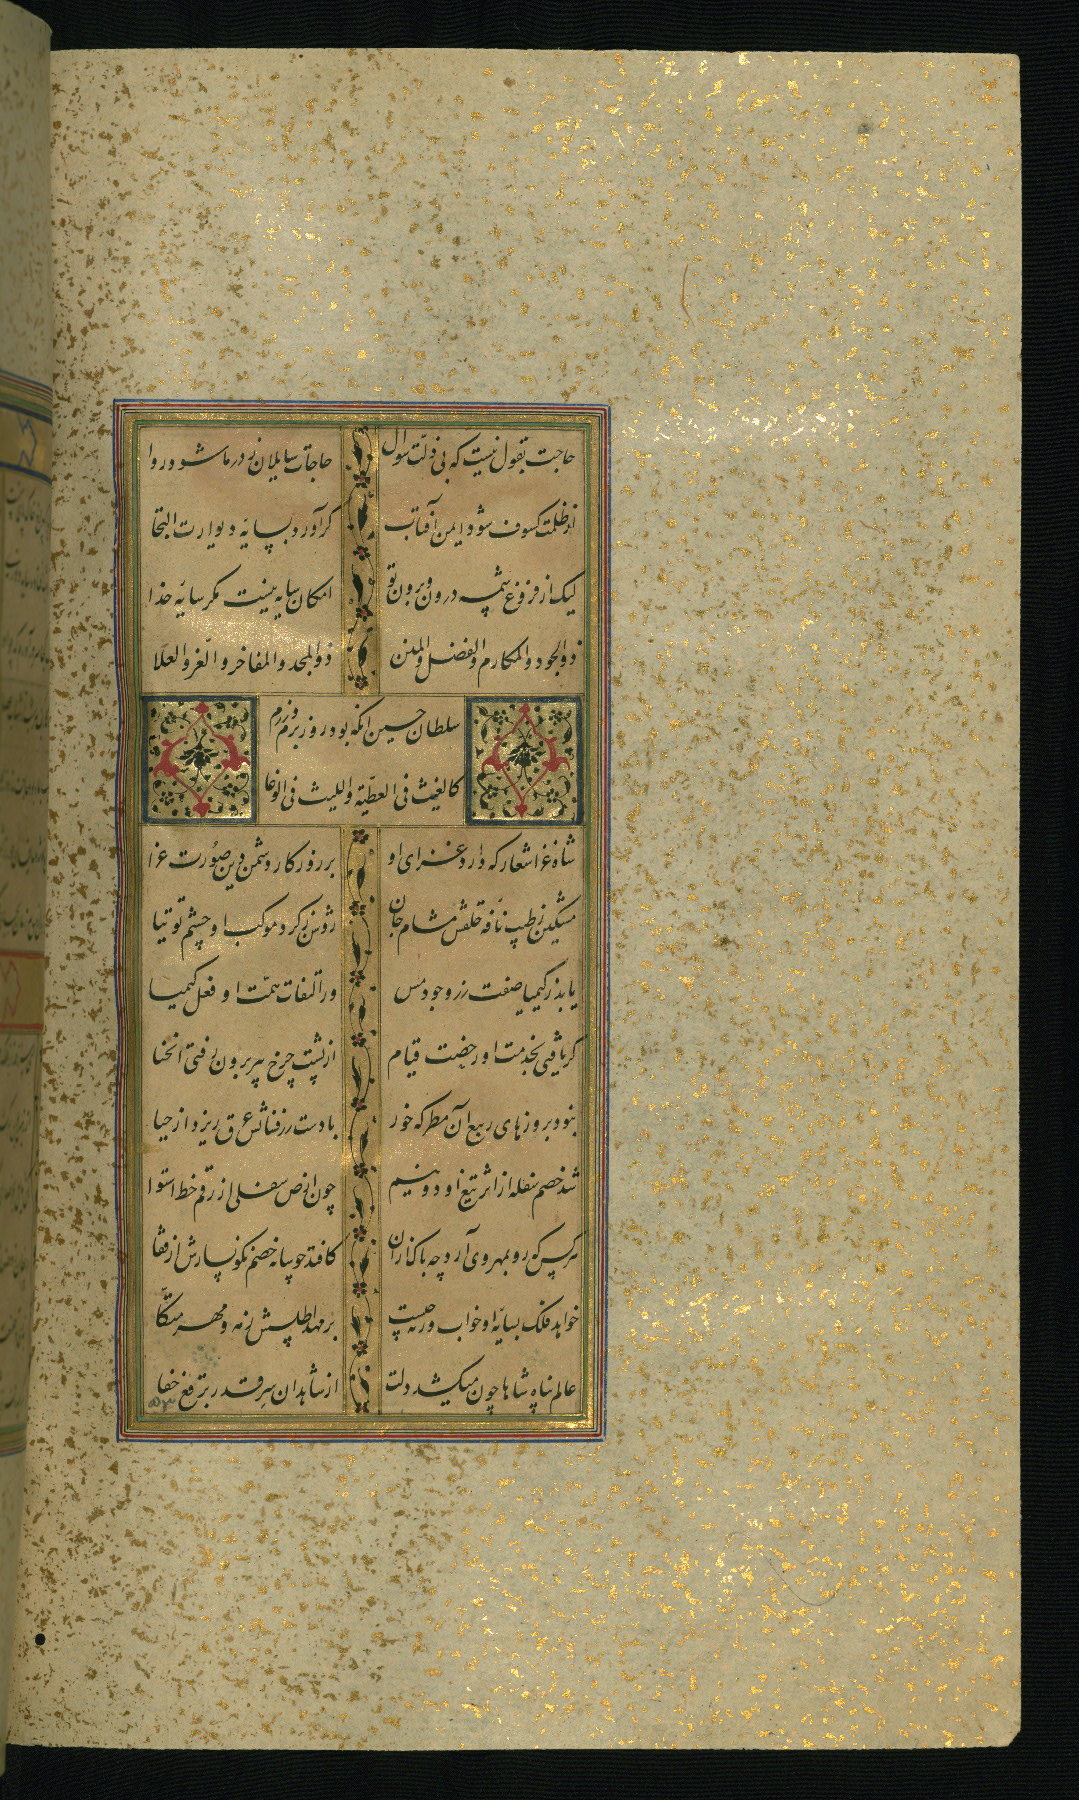 حاجت بقول نیست که بی ذلّت سؤال حاجات سایلان ز در ما شود روا
از ظلمت کسوف شود ایمن آفتاب گر آورد بسایه دیوارت التجا
لیک از فروغ شمسه درون و برون تو امکان سایه نیست مگر سایه خدا
ذوالجود والمکارم والفضل والمنن ذوالمجد والمفاخر والعز والعلا
سلطان حسین انکه بود روز بزم و رزم
کالغیث فی العطیّه واللیث فی الوغا
شاه غزا شعار که دارد غزای او بر روزکار دشمن دین صورت عزا
مشکین ز طیب نافه خلقش مشام جان روشن ز کرد موکب او چشم توتیا
یابد ز کیمیا صفت زر وجود مس در التفات همّت او فعل کیمیا
کر یافتی بخدمت او رخصت قیام از پشت چرخ پیر برون رفتی انحنا
نبود بروزهای ربیع آن مطر که خور با دست زرفشانش عرق ریزد از حیا
شد خصم سفله از اثر تیغ او دو نیم چون ارض سفلی از رقم خط استوا
هر کس که رو بمهر وی آرد چه باک از ان کافتد چو سایه خصم نکونسارش از قفا
خواهد فلک بسایه او خواب ورنه چیست بر مهد اطلسش ز مه و مهر متّکا
عالم پناه شاها چون میکشد دلت از شاهدان سرّ قدر برقع خفا